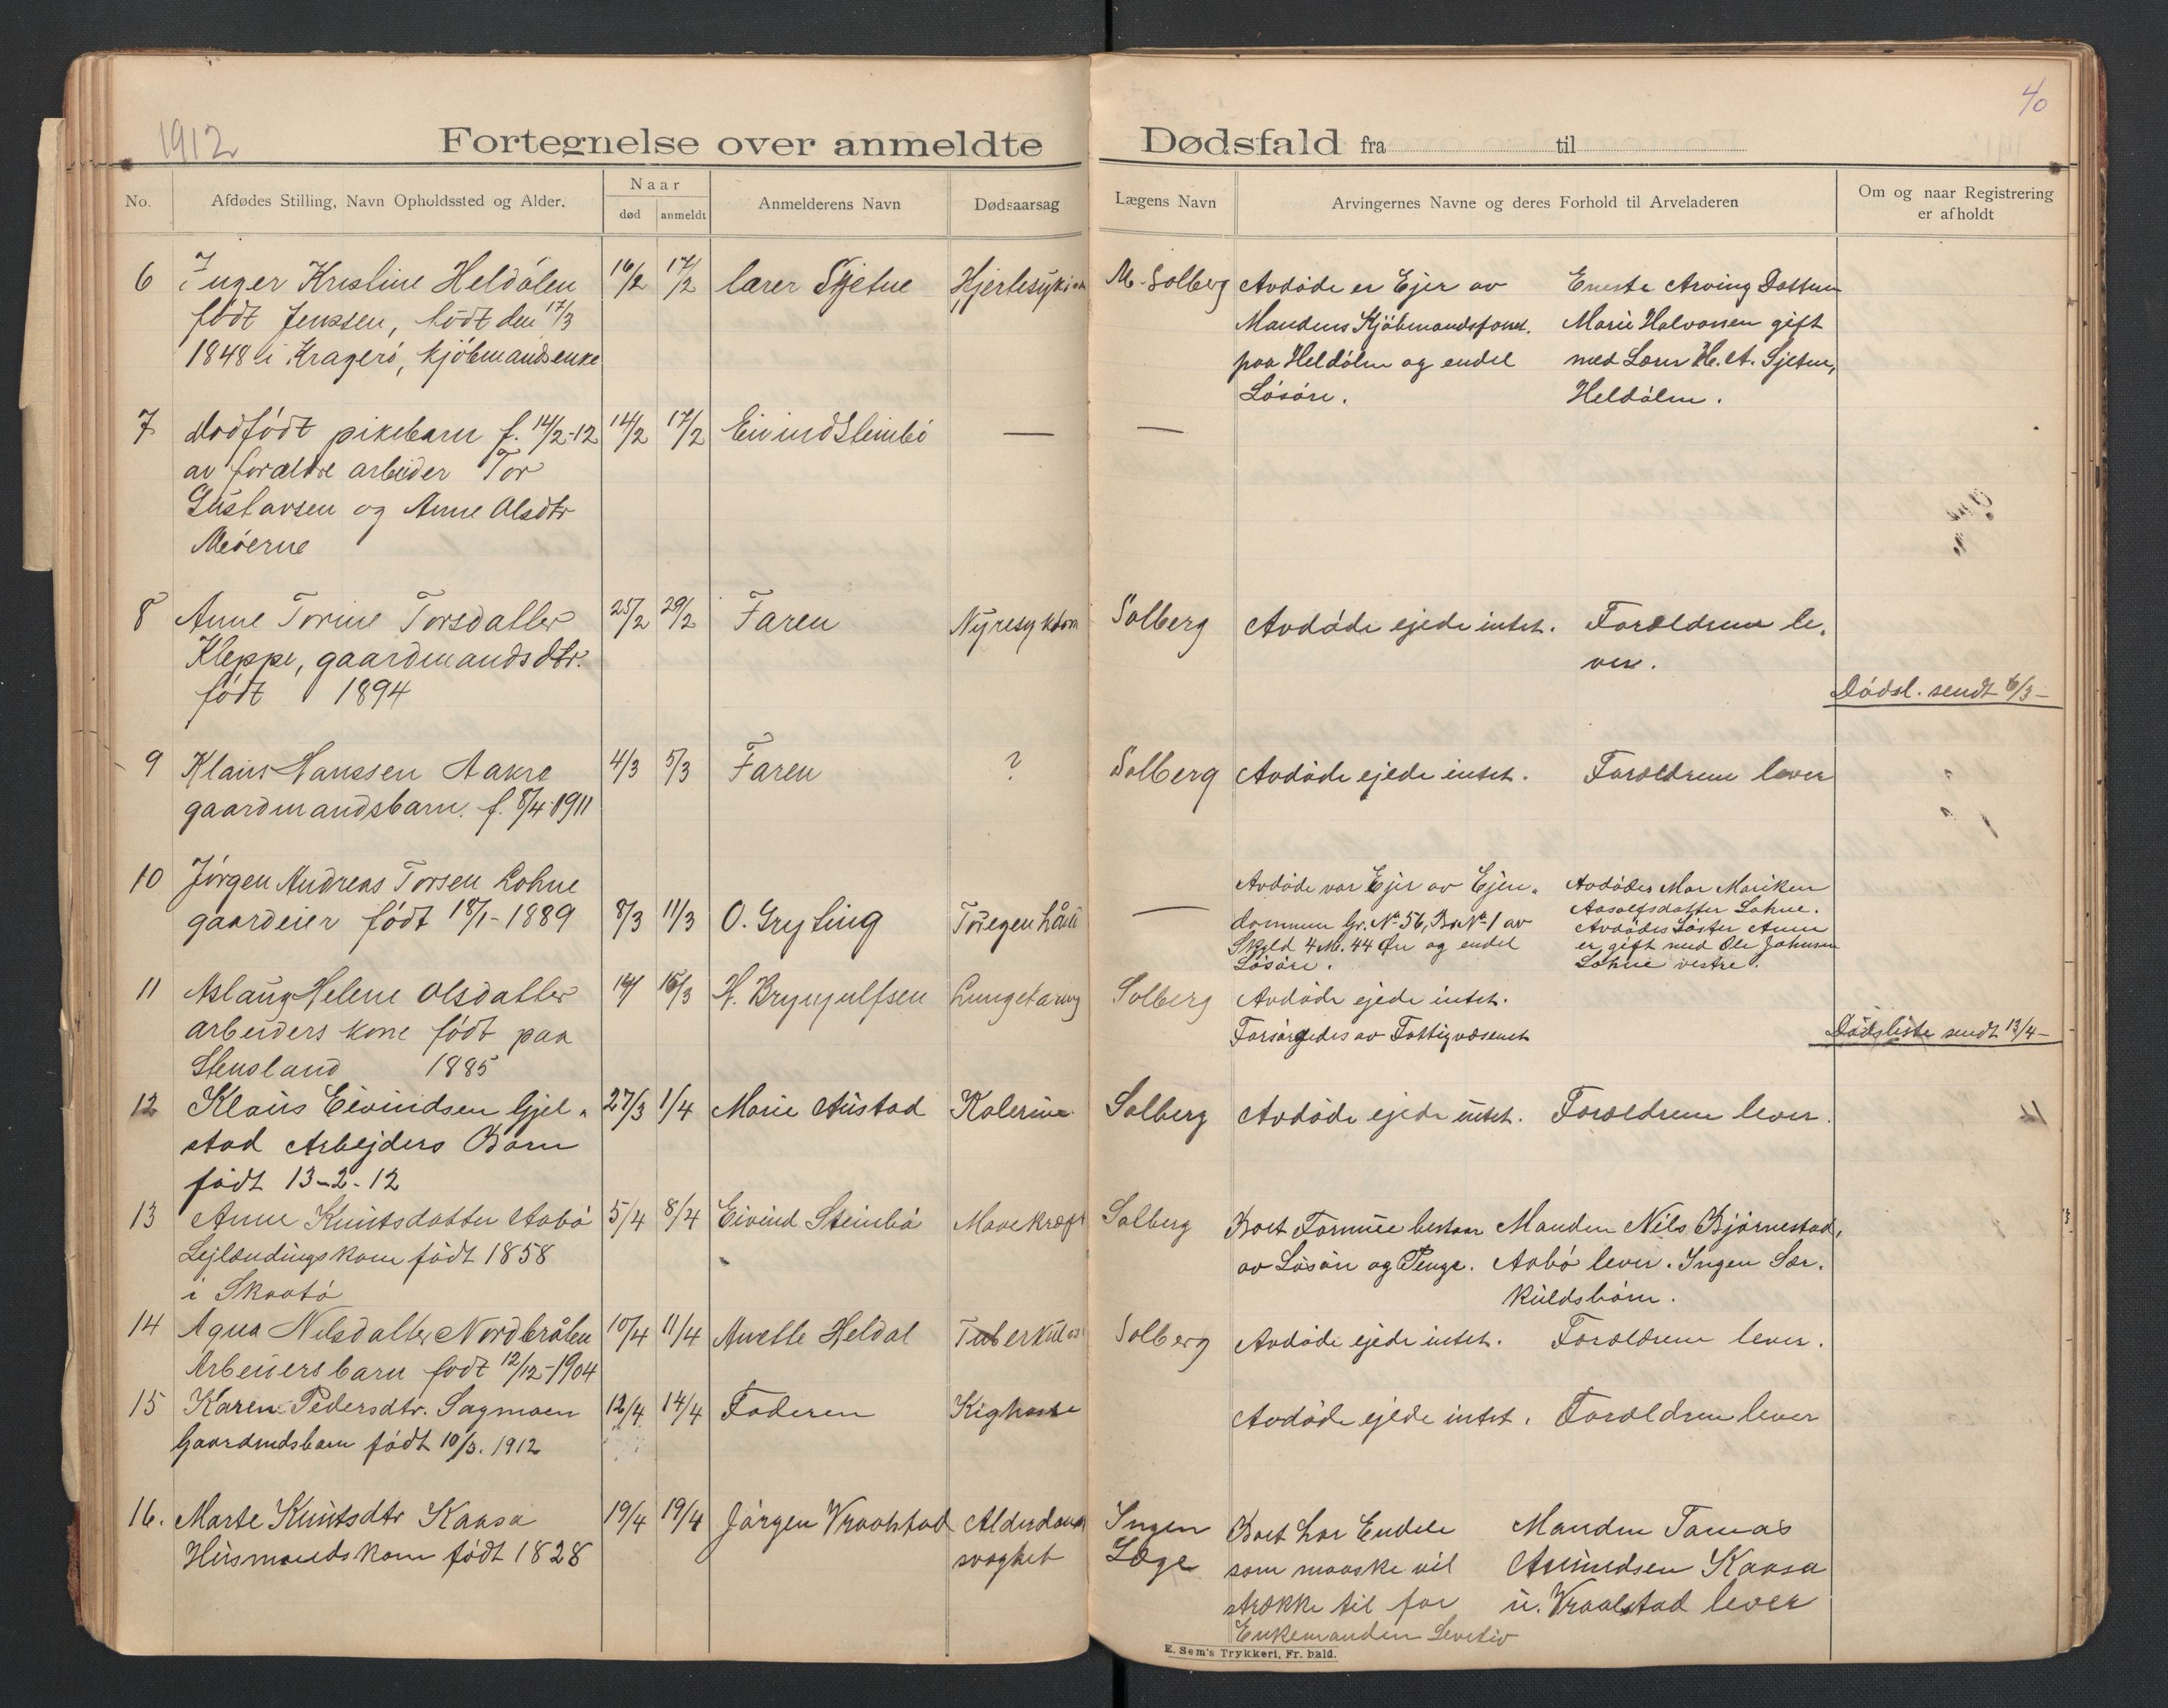 1912
40
Fortegnelse over anmeldte Dødsfald fra til
No. Afdødes Stilling, Navn Opholdssted og Alder. Naar død anmeldt Anmelderens Navn Dødsaarsag Lægens Navn Arvingernes Navne og deres Forhold til Arveladeren Om og naar Registrering er afholdt
6 Inger Kristine Heldølen 16/2 17/2 lærer Sjetne Hjertesykdom M. Solberg Avdøde er Ejer av Eneste Arving Datteren
født Jenssen, født den 17/3 Mandens Kjøbmandsforret. Marie Halvorsen gift
1848 i Kragerø, kjøbmandsenke paa Heldølen og endel med Lærer H. A. Sjetne,
Løsøre. Heldølen.
7 dødfødt pikebarn f. 14/2-12 14/2 17/2 Eivind Steinbø — —
av forældre arbeider Tor
Gustavsen og Anne Olsdtr
Meierne
8 Anne Torine Torsdatter 25/2 29/2 Faren Nyresykdom Solberg Avdøde ejede intet. Forældrene le-
Kleppe, gaardmandsdtr. vere.
født 1894
Dødsl. sendt 6/3 —
9 Klaus Hanssen Aakre 4/3 5/3 Faren ? Solberg Avdøde ejede intet. Forældrene lever
gaardmandsbarn. f. 8/4-1911
10 Jørgen Andreas Torsen Lohne Avdøde var Ejer av Ejen- Avdødes Mor Mariken
gaardeier født 18/1-1889 8/3 11/3 O. Gryting — dommen Gr. No 56, Br No 1 av Aasolfsdatter Lohne.
Skyld 4 M. 44 Øre og endel Avdødes Søster Anne
Løsøre. er gift med Ole Johnsen
Lohne vestre.
11 Aslaug Helene Olsdatter 14/ 15/3 H. Brynjulfsen Lungetæring Solberg Avdøde ejede intet.
arbeiders kone født paa Forsørgedes av Fattigvæsenet
Stensland 1885
Dødsliste sendt 13/4 —
12 Klaus Eivindsen Gjel- 27/3 1/4 Marie Austad Kolerine Solberg Avdøde ejede intet. Forældrene lever.
stad Arbejders Barn
født 13-2-12
13 Anne Knutsdatter Aabø 5/4 8/4 Eivind Steinbø Mavekræft Solberg Boet Formue bestaar Manden Nils Bjørnestad,
Lejlændingskone født 1858 av Løsøre og Penge. Aabø lever. Ingen Sær-
i Skaatø kuldsbørn.
14 Agna Nilsdatter Nordbråten 10/4 11/4 Anette Heldal Tuberkulos Solberg Avdøde ejede intet. Forældrene lever.
Arbeidersbarn født 12/12-1904
15 Karen Pedersdtr. Sagmoen 12/4 14/4 Faderen Kighoste Avdøde ejede intet. Forældrene lever
Gaardmdsbarn født 10/3. 1912
16. Marte Knutsdtr Kaasa 19/4 19/4 Jørgen Vraalstad Alderdoms Ingen Boet har Endele Manden Tomas
Husmandskone født 1828 svaghet Læge som maaske vil Amundsen Kaasa
strække til for u. Vraalstad lever
Enkemanden Levetid
E. Sem's Trykkeri, Fr. hald.